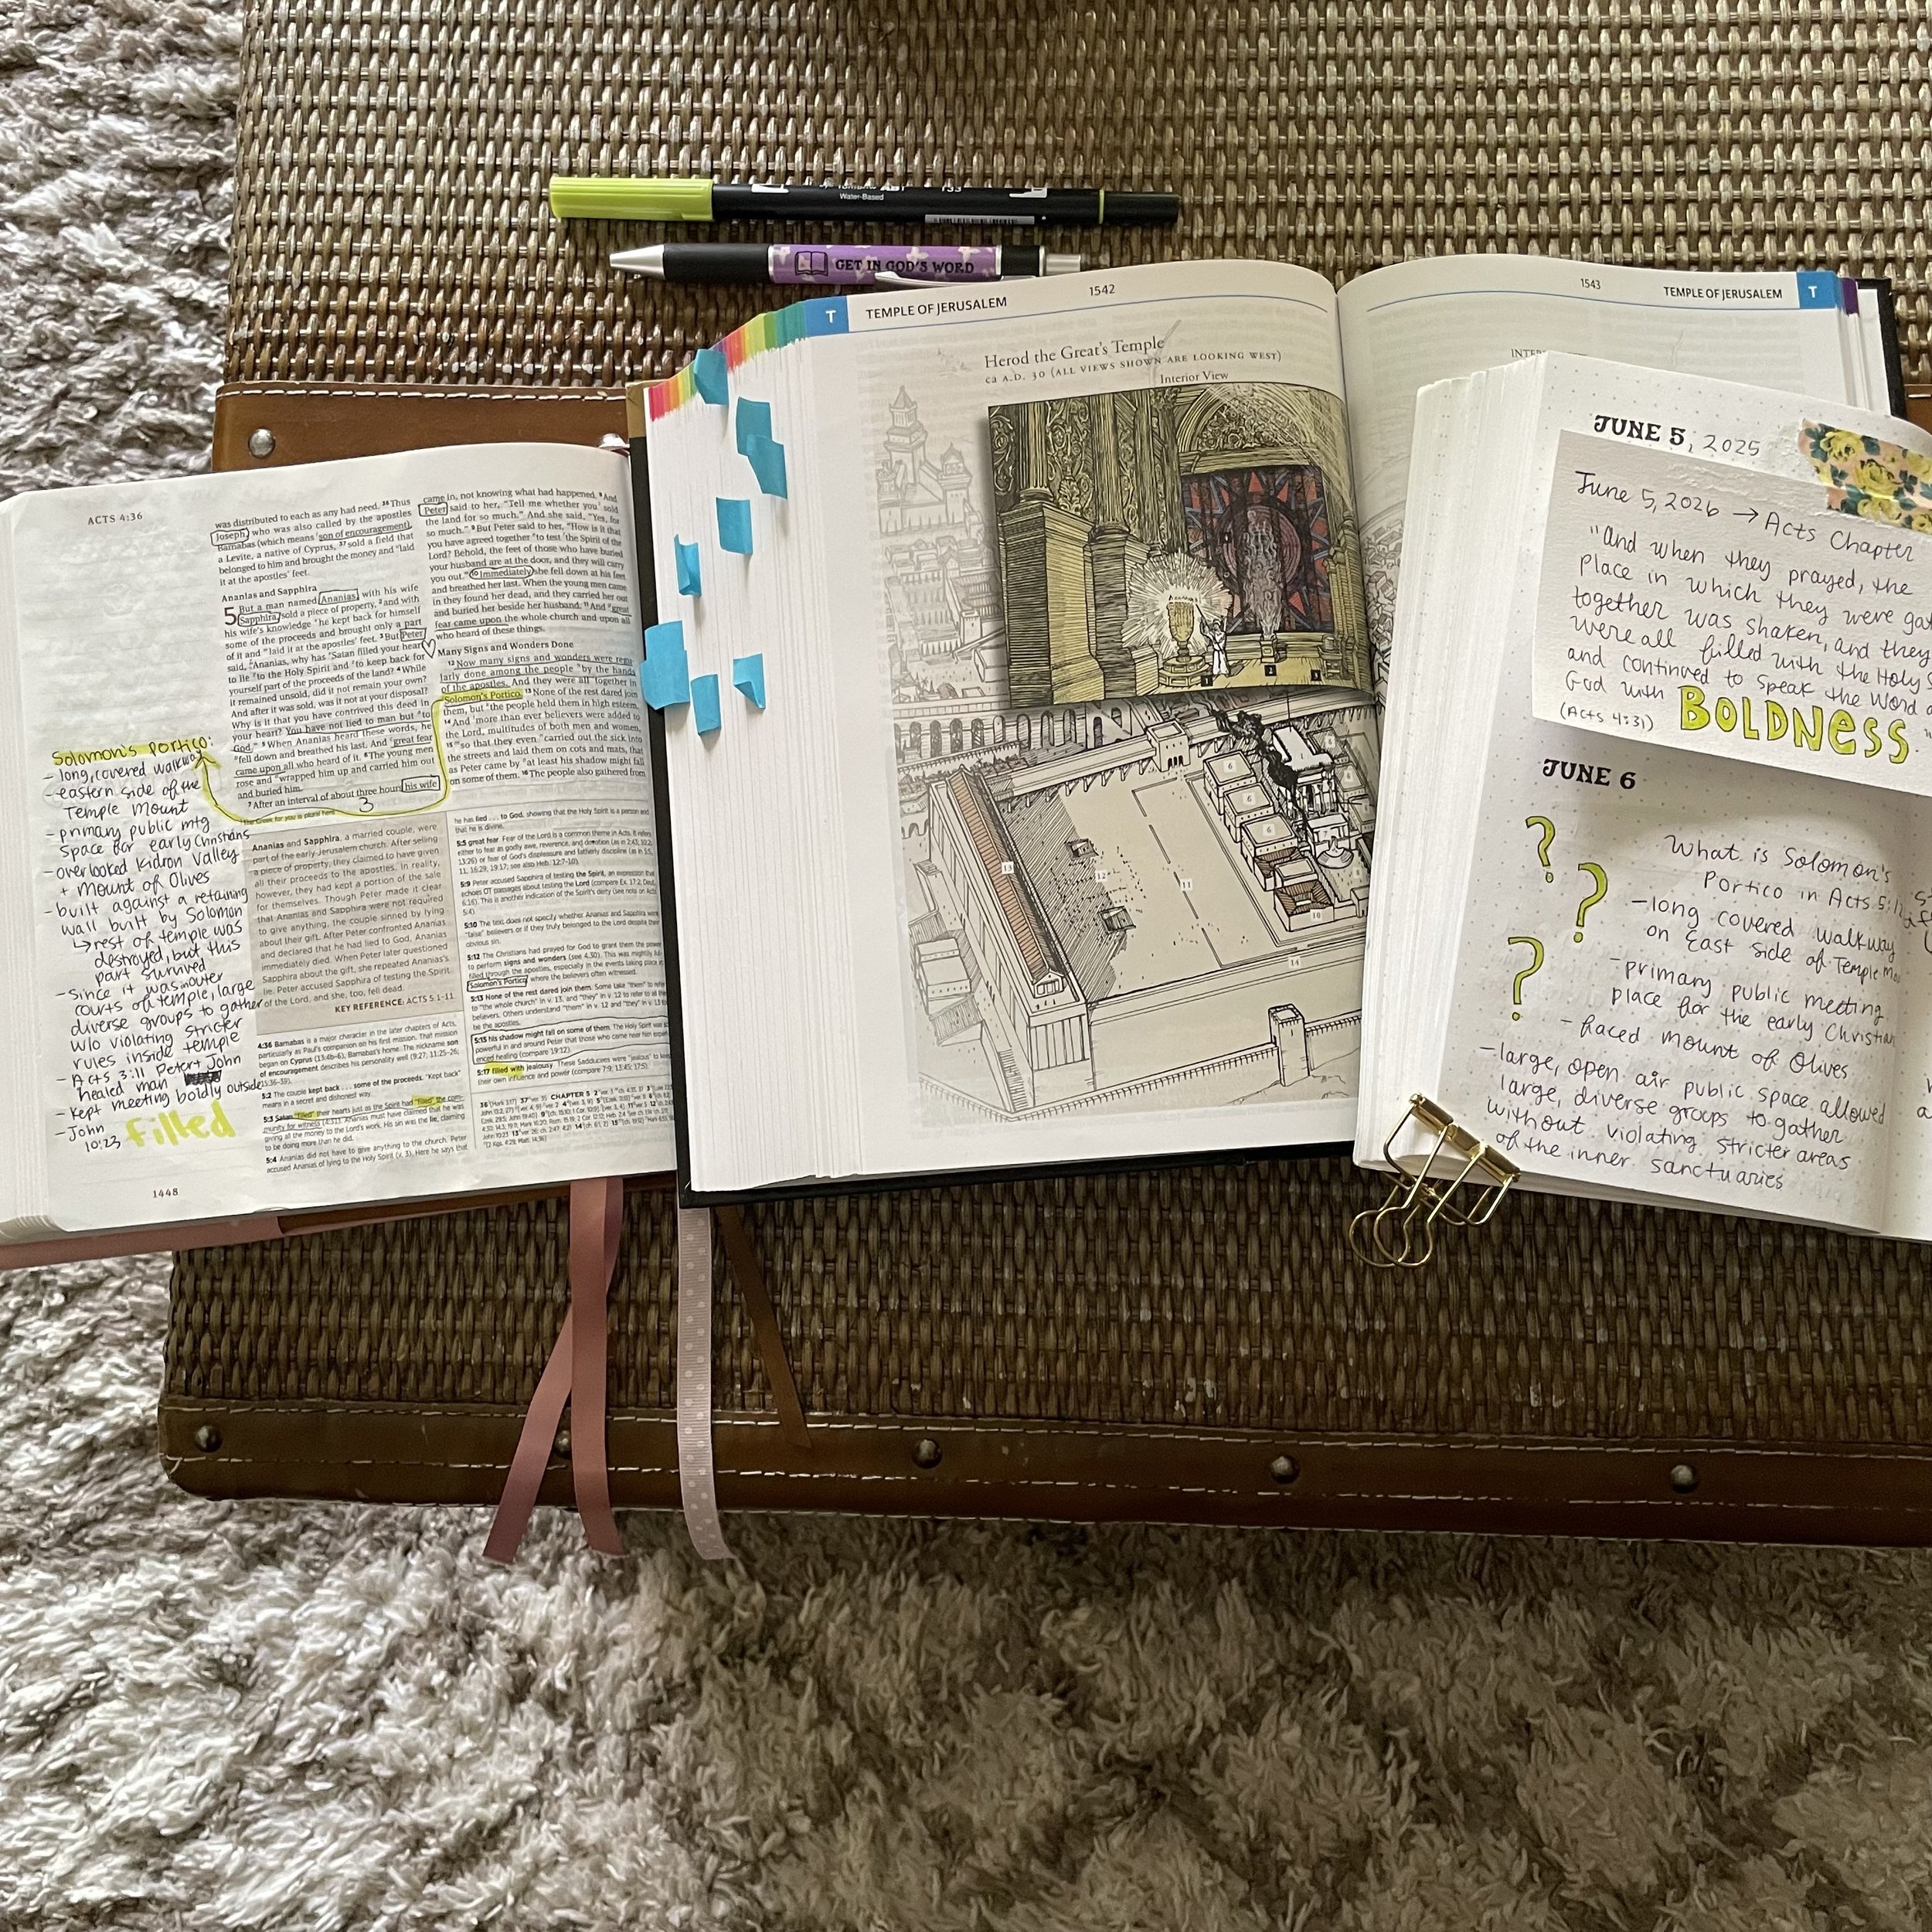 Water-Based
GET IN GOD'S WORD
ACTS 4:36
was distributed to each as any had need. 36 Thus
Joseph, who was also called by the apostles
Barnabas (which means son of encouragement),
a Levite, a native of Cyprus, 37 sold a field that
belonged to him and brought the money and laid
it at the apostles' feet.
Ananias and Sapphira
5 But a man named Ananias, with his wife
Sapphira, sold a piece of property, 2 and with
his wife's knowledge he kept back for himself
some of the proceeds and brought only a part
of it and laid it at the apostles' feet. 3 But Peter
said, "Ananias, why has Satan filled your heart
to lie to the Holy Spirit and to keep back for
yourself part of the proceeds of the land? 4 While
it remained unsold, did it not remain your own?
And after it was sold, was it not at your disposal?
Why is it that you have contrived this deed in
your heart? You have not lied to man but to
God." 5 When Ananias heard these words, he
fell down and breathed his last. And great fear
came upon all who heard of it. 6 The young men
rose and wrapped him up and carried him out
and buried him.
7 After an interval of about three hours his wife
3
came in, not knowing what had happened. 8 And
Peter said to her, "Tell me whether you sold
the land for so much." And she said, "Yes, for
so much." 9 But Peter said to her, "How is it that
you have agreed together to test the Spirit of the
Lord? Behold, the feet of those who have buried
your husband are at the door, and they will carry
you out." 10 Immediately she fell down at his feet
and breathed her last. When the young men came
in they found her dead, and they carried her out
and buried her beside her husband. 11 And great
fear came upon the whole church and upon all
who heard of these things.
Many Signs and Wonders Done
12 Now many signs and wonders were regu
larly done among the people by the hands
of the apostles. And they were all together in
Solomon's Portico. 13 None of the rest dared join
them, but the people held them in high esteem.
14 And more than ever believers were added to
the Lord, multitudes of both men and women,
15 so that they even carried out the sick into
the streets and laid them on cots and mats, that
as Peter came by at least his shadow might fall
on some of them. 16 The people also gathered from
Solomon's Portico:
- long, covered walkway
- eastern side of the
Temple Mount
- primary public mtg
space for early Christians
- overlooked Kidron Valley
+ Mount of Olives
- built against a retaining
wall built by Solomon
↳ rest of temple was
destroyed, but this
part survived
- since it was outer
courts of temple, large
diverse groups to gather
w/o violating stricter
rules inside temple
- Acts 3:11 Peter + John
healed man
- kept meeting boldly outside
- John
10:23 filled
Ananias and Sapphira, a married couple, were
part of the early Jerusalem church. After selling
a piece of property, they claimed to have given
all their proceeds to the apostles. In reality,
however, they had kept a portion of the sale
for themselves. Though Peter made it clear
that Ananias and Sapphira were not required
to give anything, the couple sinned by lying
about their gift. After Peter confronted Ananias
and declared that he had lied to God, Ananias
immediately died. When Peter later questioned
Sapphira about the gift, she repeated Ananias's
lie. Peter accused Sapphira of testing the Spirit
of the Lord, and she, too, fell dead.
KEY REFERENCE: ACTS 5:1–11
4:36 Barnabas is a major character in the later chapters of Acts,
particularly as Paul's companion on his first mission. That mission
began on Cyprus (13:4b–6), Barnabas's home. The nickname son
of encouragement describes his personality well (9:27; 11:25–26;
5:2 The couple kept back . . . some of the proceeds. "Kept back"
means in a secret and dishonest way.
5:3 Satan "filled" their hearts just as the Spirit had "filled" the com-
munity for witness (4:31). Ananias must have claimed that he was
giving all the money to the Lord's work. His sin was the lie, claiming
to be doing more than he did.
5:4 Ananias did not have to give anything to the church. Peter
accused Ananias of lying to the Holy Spirit (v. 3). Here he says that
he has lied . . . to God, showing that the Holy Spirit is a person and
that he is divine.
5:5 great fear. Fear of the Lord is a common theme in Acts.
5:9 Peter accused Sapphira of testing the Spirit, an expression that
5:10 The text does not specify whether Ananias and Sapphira were
"false" believers or if they truly belonged to the Lord despite their
obvious sin.
5:12 The Christians had prayed for God to grant them the power
to perform signs and wonders (see 4:30). This was mightily ful
filled through the apostles, especially in the events taking place in
Solomon's Portico, where the believers often witnessed.
5:13 None of the rest dared join them.
5:15 his shadow might fall on some of them. The Holy Spirit was so
powerful in and around Peter that those who came near him experi
enced healing (compare 19:12).
5:17 filled with jealousy. These Sadducees were "jealous" to keep
their own influence and power (compare 7:9; 13:45; 17:5).
1448
T TEMPLE OF JERUSALEM 1542
Herod the Great's Temple
ca A.D. 30 (ALL VIEWS SHOWN ARE LOOKING WEST)
Interior View
1 2 3
6
6
6
10
11
12
13
14
1543 TEMPLE OF JERUSALEM T
JUNE 5, 2025
June 5, 2026 → Acts Chapter
"And when they prayed, the
place in which they were gat
together was shaken, and they
were all filled with the Holy S
and continued to speak the Word o
God with BOLDNESS."
(Acts 4:31)
JUNE 6
? ? ?
What is Solomon's
Portico in Acts 5:12
- long covered walkway
on East side of Temple Mo
- primary public meeting
place for the early Christian
- faced mount of Olives
- large, open air public space allowed
large, diverse groups to gather
without violating stricter areas
of the inner sanctuaries